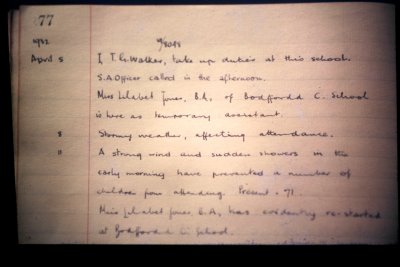 77
1932
April 5 I, T.G. Walker, take up duties at this school.
S.A. Officer called in the afternoon.
Miss Lilabet Jones, B.A., of Bodffordd C. School
is here as temporary assistant.
8 Stormy weather, affecting attendance.
11 A strong wind and sudden showers in the
early morning have prevented a number of
children from attending. Present - 71.
Miss Lilabet Jones, B.A., has evidently re-started
at Bodffordd C. School.